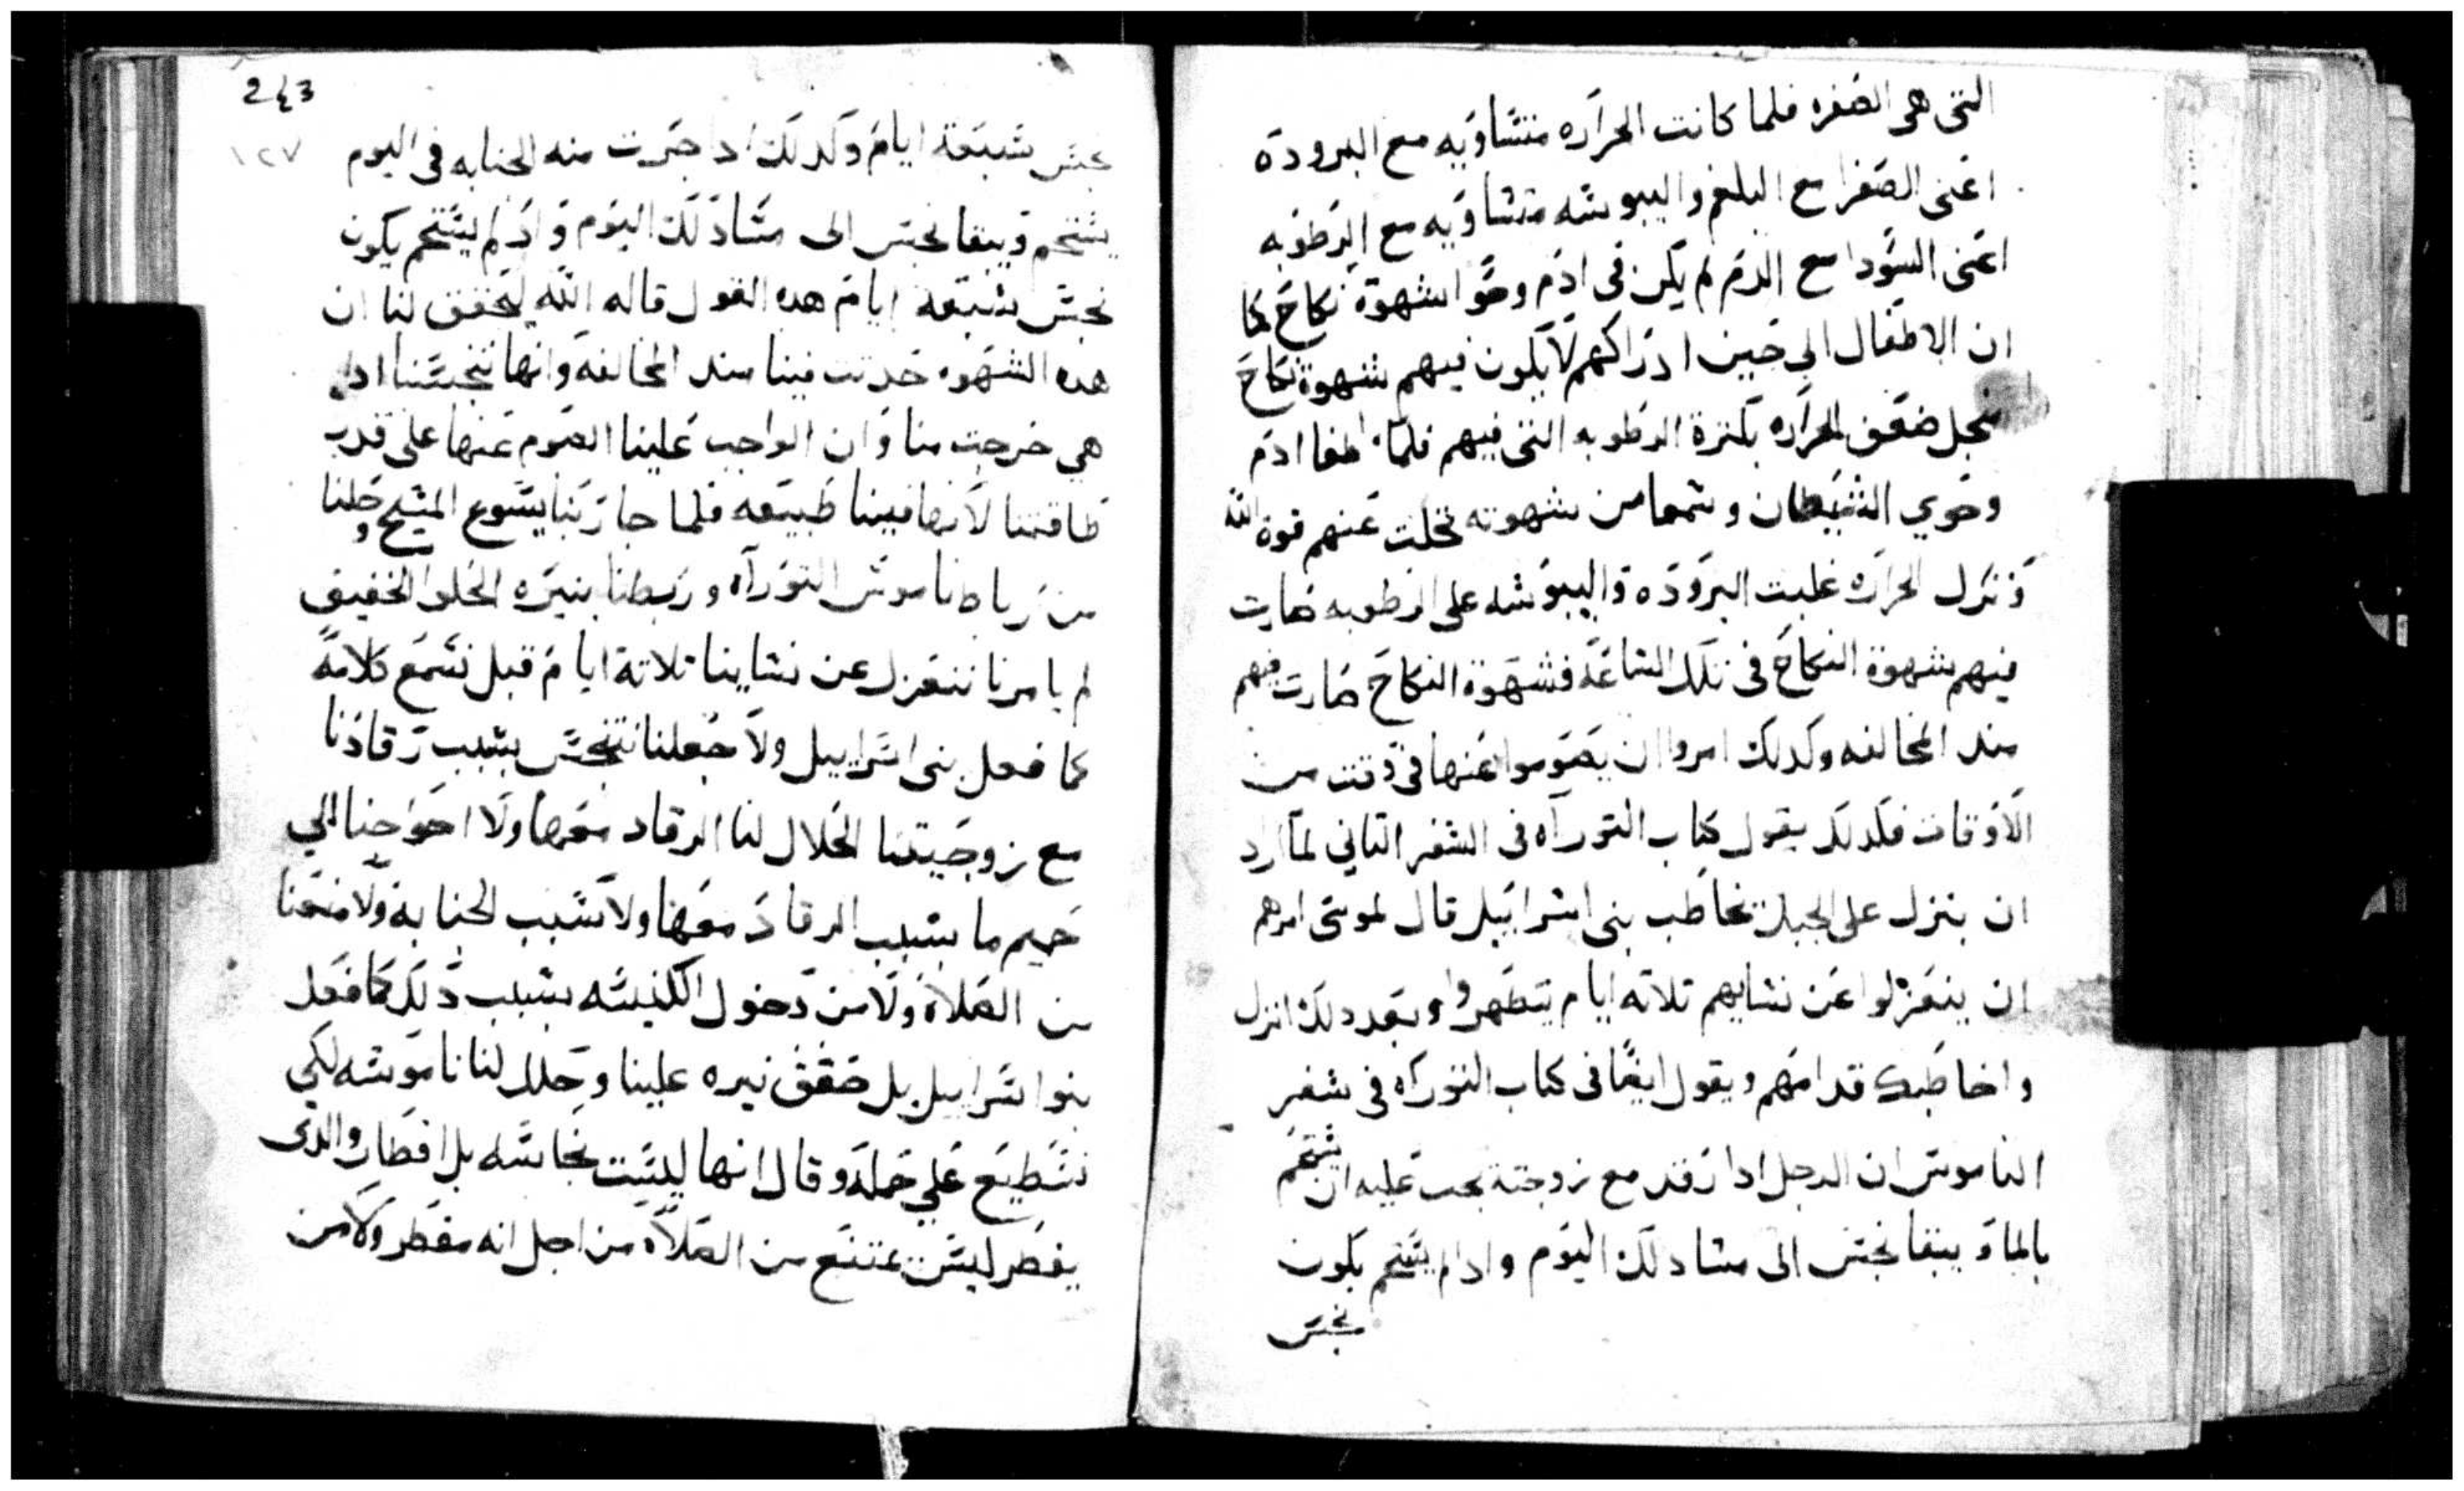 التى هى الصفره فلما كانت الحراره متساويه مع البروده
اعنى الصفرا مع البلغم واليبوسه متساويه مع الرطوبه
اعنى السودا مع الدم لم يكن فى ادم وحوا شهوة نكاح كما
ان الاطفال الي حين ادراكهم لا يكون فيهم شهوة نكاح
ضعف الحراره بكترة الرطوبه التى فيهم فلما اطغا ادم
وحوي الشيطان وشمما من شهوته تخلت عنهم قوة الله
الحراره غلبت البروده واليبوسه على الرطوبه صارت
فيهم شهوة النكاح فى تلك الساعه فشهوة النكاح صارت فيهم
مند المخالفه وكدلك امروا ان يصوموا عنها فى وقت من
الاوقات فلدلك يقول كتاب التوراه فى السفر التاني لما اراد
ان ينزل على الجبل يخاطب بنى اسراييل قال لموسى امرهم
ان ينعزلوا عن نسايهم تلاته ايام يتطهروا وبعد دلك انزل
واخاطبك قدامهم ويقول ايضا فى كتاب التوراه فى سفر
الناموس ان الرجل ادا رقد مع زوجته يجب عليه ان يستحم
بالما ويبقا نجس الى مسا دلك اليوم وادا لم يستحم يكون
نجس
243
١٢٧
نجس سبعة ايام وكدلك ادا جرت منه الجنابه فى اليوم
يستحم ويبقا نجس الى مسا دلك اليوم وادا لم يستحم يكون
نجس سبعة ايام هده القول قاله الله ليحقق لنا ان
هده الشهوه حدتت فينا مند المخالفه وانها تنجسنا ادا
هي خرجت منا وان الواجب علينا الصوم عنها على قدر
طاقتنا لانها فينا طبيعه فلما جا ربنا يسوع المسيح وحلنا
من رباط ناموس التوراه وربطنا بنيره الحلو الخفيف
لم يامرنا ننعزل عن نساينا تلاتة ايام قبل نسمع كلامه
كما فعل بنى اسراييل ولا جعلنا نتنجس بسبب رقادنا
مع زوجيتنا الحلال لنا الرقاد معها ولا احوجنا الي
حميم ما بسبب الرقاد معها ولا بسبب الجنابه ولا منعنا
من الصلاه ولا من دخول الكنيسه بسبب دلك كما فعل
بنوا سراييل بل خفف نيره علينا وحلل لنا ناموسه لكي
نسطيع علي حمله وقال انها ليست نجاسه بل افطار والدى
يفطر ليس يمتنع من الصلاه من اجل انه مفطر ولا من